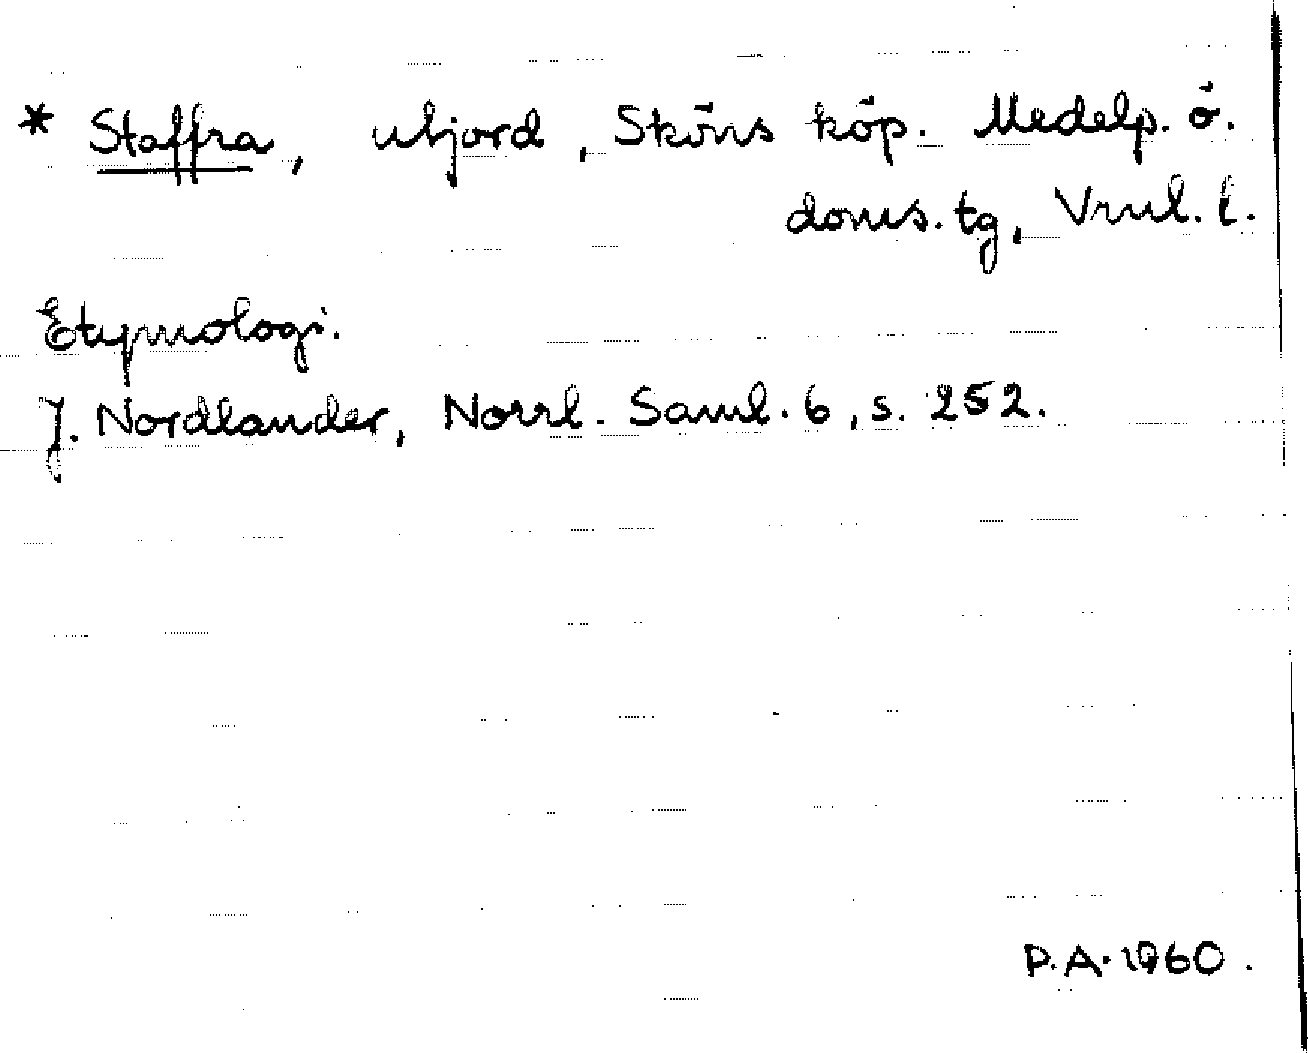 * Staffra, utjord, Sköns köp. Medelp. ö.
doms. tg, Vnrl. l.
Etymologi.
J. Nordlander, Norrl. Saml. 6, s. 252.
P.A. 1960.